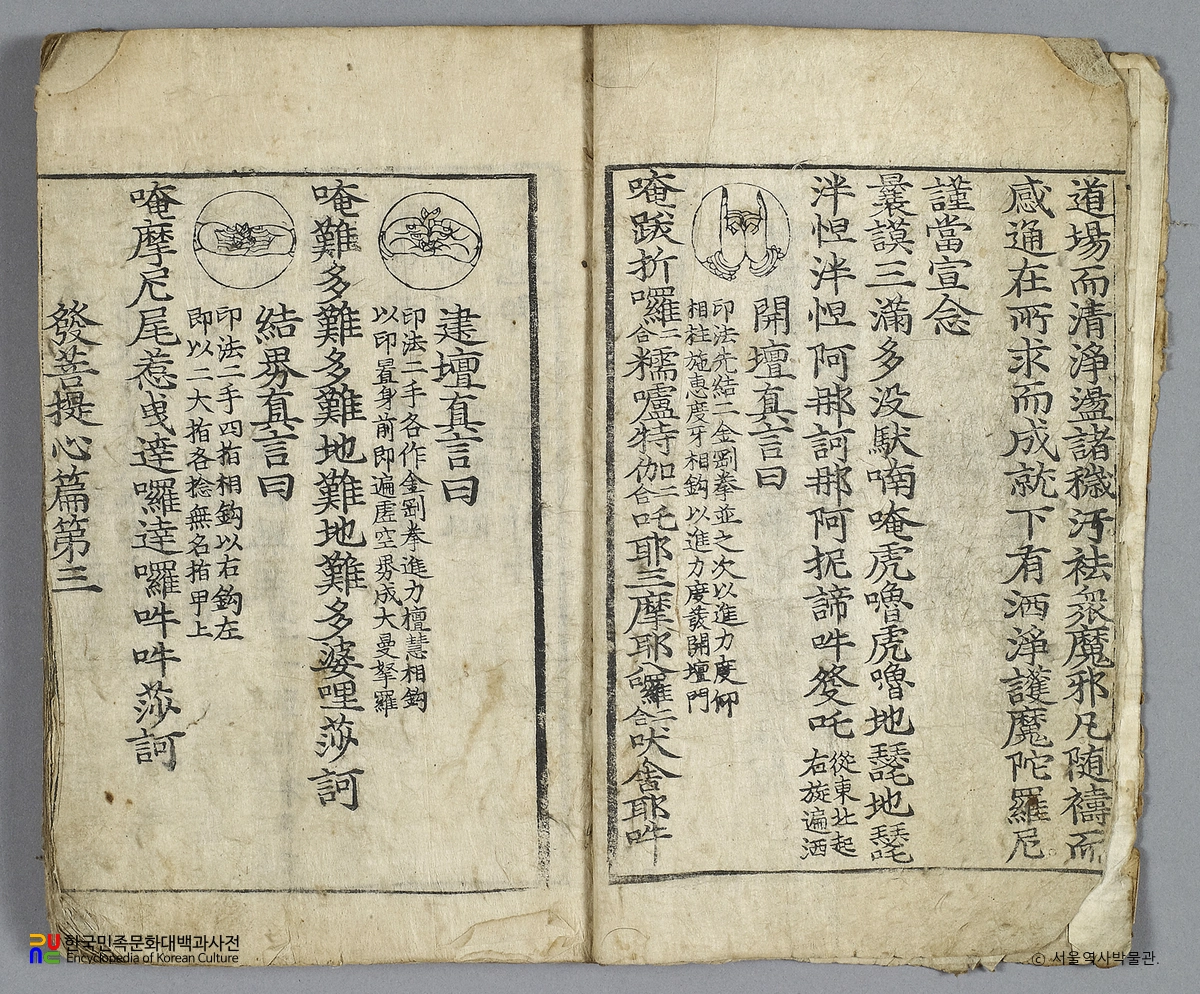 道場而清淨盪諸穢汚袪衆魔邪凡随禱而
感通在所求而成就下有洒淨護魔陀羅尼
謹當宣念
曩謨三滿多没馱喃唵虎嚕虎嚕地瑟吒地瑟吒
泮怛泮怛阿那訶那阿抳諦吽癹吒
從東北起
右旋遍洒
開壇真言曰
印法先結二金剛拳並之次以進力度仰
相柱施恵度牙相鈎以進力度發開壇門
唵跋折囉二合糯嚧特伽二合吒耶三摩耶八囉二合吠舍耶吽
建壇真言曰
印法二手各作金剛拳進力檀慧相鈎
以印置身前即遍虛空界成大曼拏羅
唵難多難多難地難地難多婆哩莎訶
結界真言曰
印法二手四指相鈎以右鈎左
即以二大指各捻無名指甲上
唵摩尼尾惹曳達囉達囉吽吽莎訶
發菩提心篇第三
한국민족문화대백과사전
Encyclopedia of Korean Culture
ⓒ 서울역사박물관.